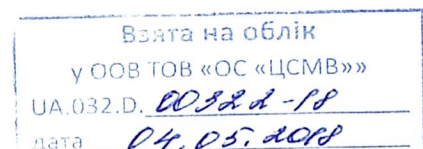 Взята на облік
у ООВ ТОВ «ОС «ЦСМВ»»
UA.032.D. 00322-18
дата 04.05.2018